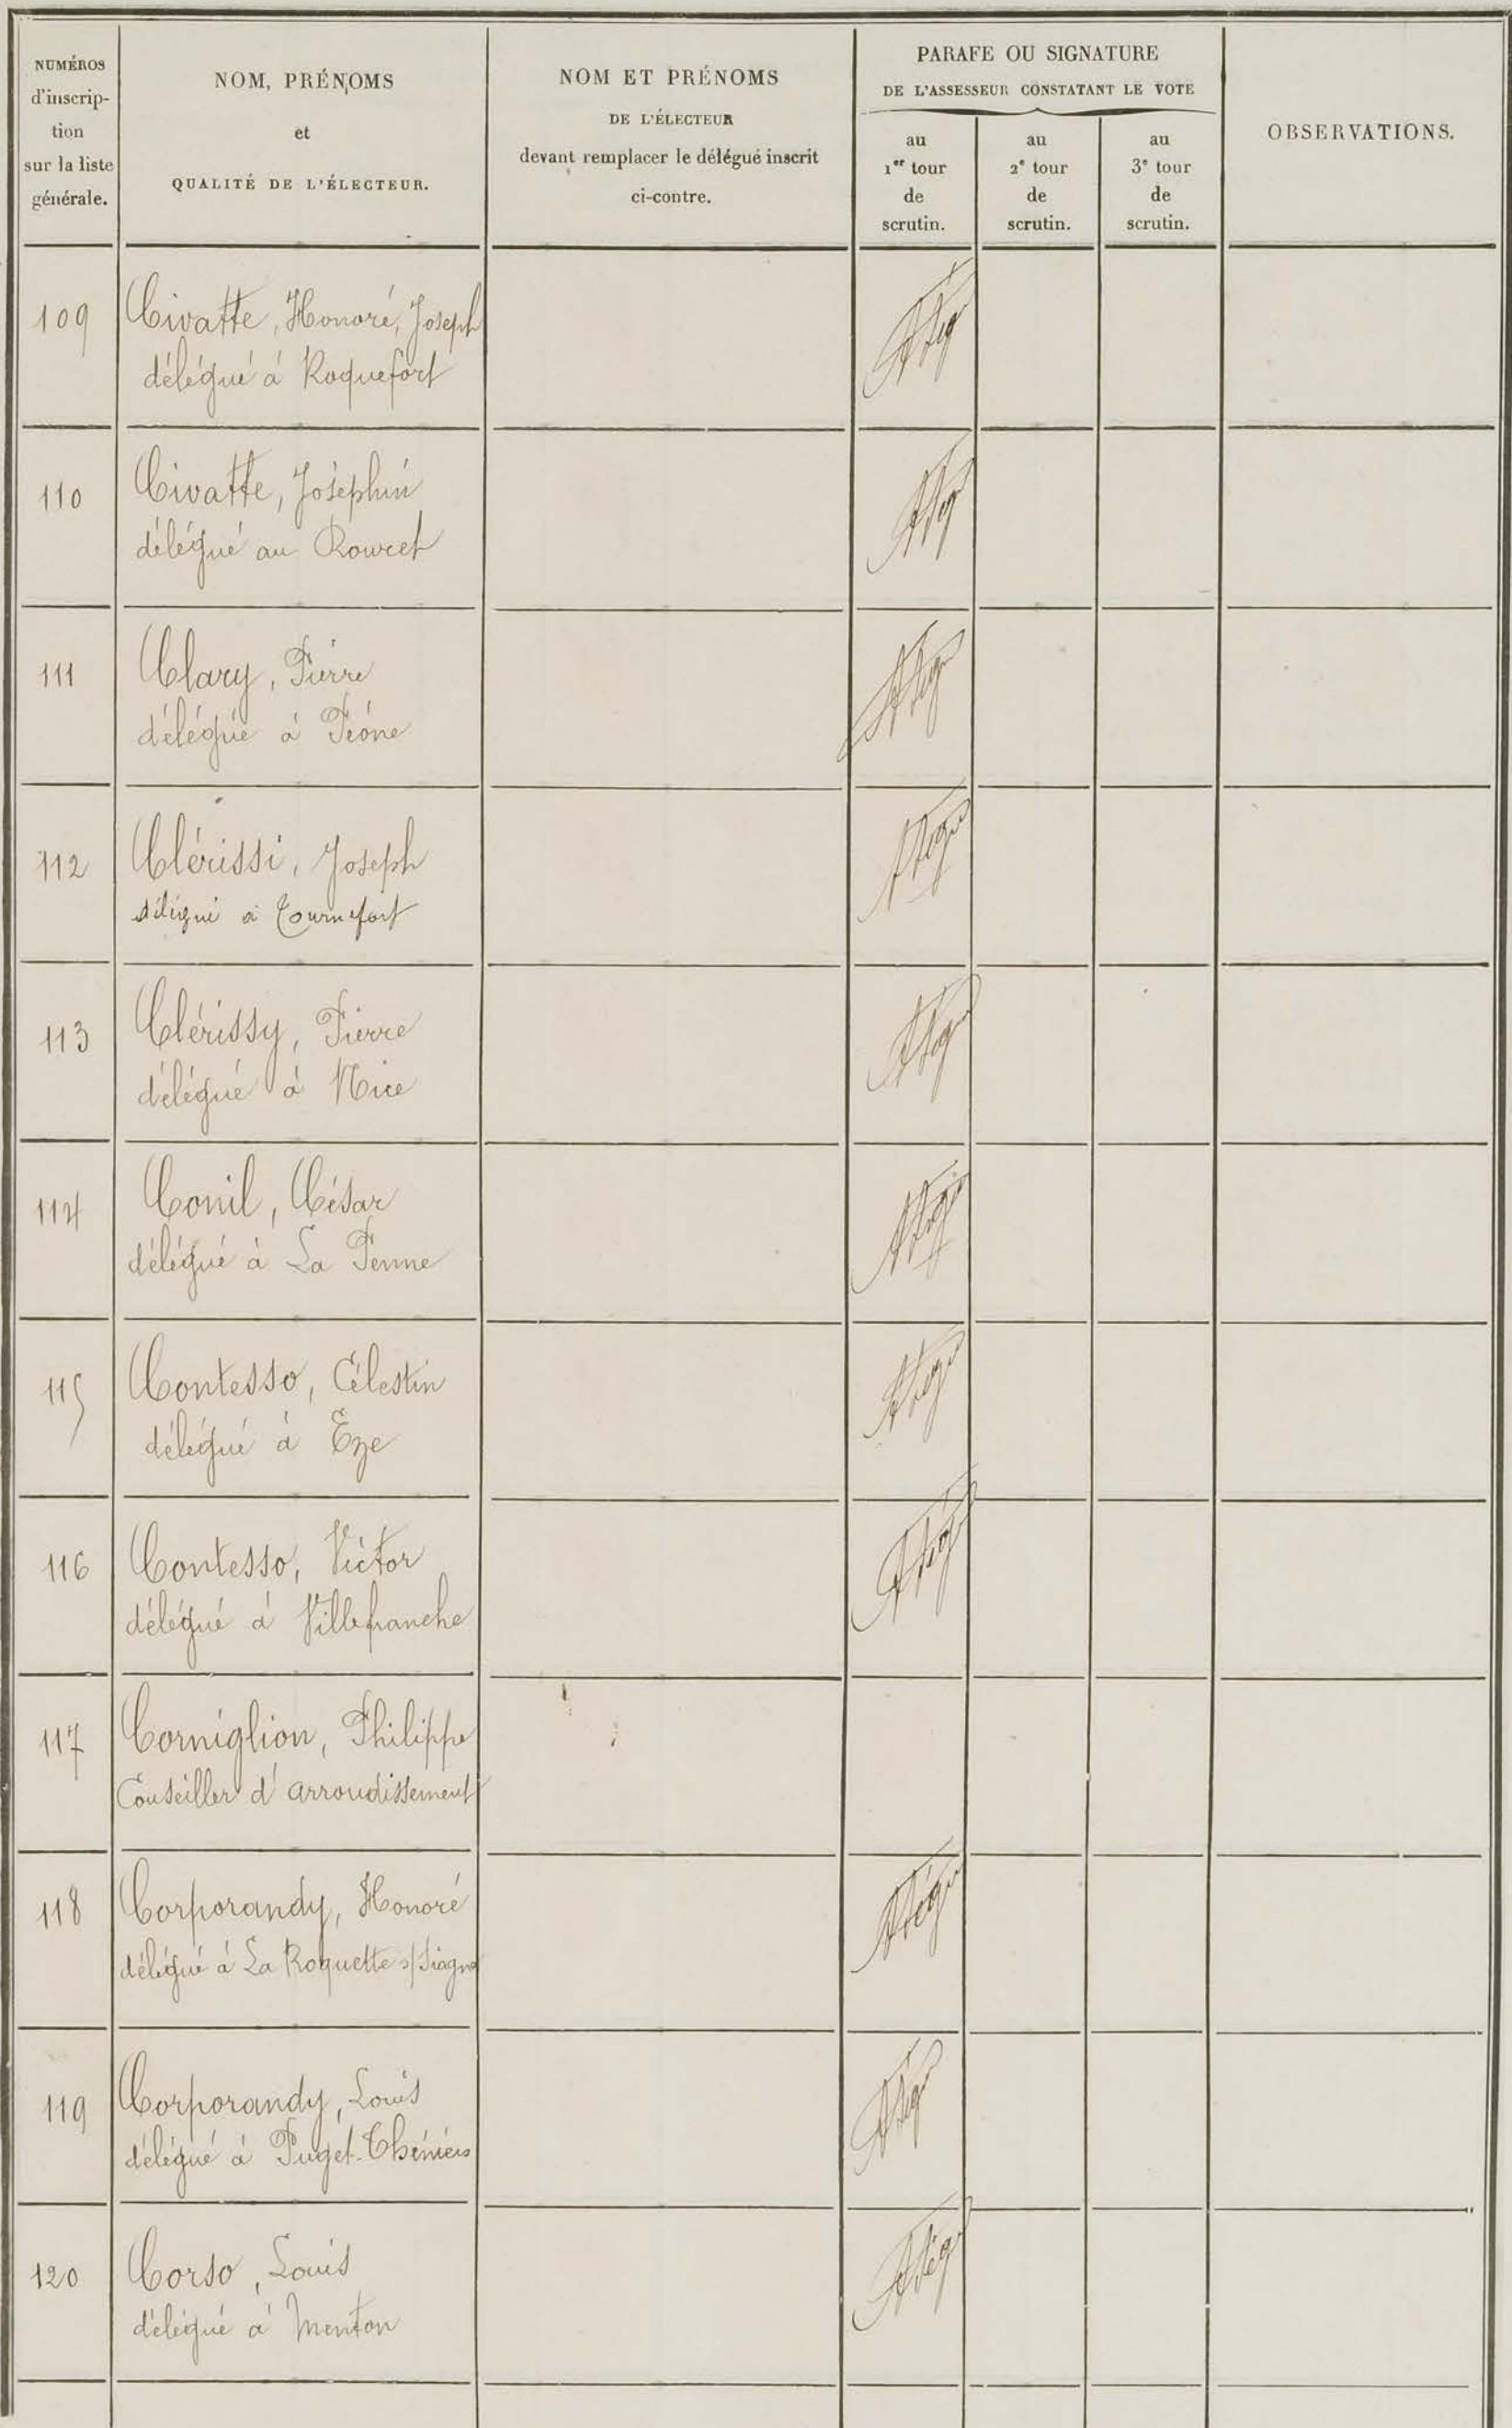 NUMÉROS
d'inscrip-
tion
sur la liste
générale.
NOM, PRÉNOMS
et
QUALITÉ DE L'ÉLECTEUR.
NOM ET PRÉNOMS
DE L'ÉLECTEUR
devant remplacer le délégué inscrit
ci-contre.
PARAFE OU SIGNATURE
DE L'ASSESSEUR CONSTATANT LE VOTE
au
1er tour
de
scrutin.
au
2e tour
de
scrutin.
au
3e tour
de
scrutin.
OBSERVATIONS.
109 Civatte, Honoré, Joseph
délégué à Roquefort
110 Civatte, Joséphin
délégué au Rouret
111 Clary, Pierre
délégué à Péone
112 Clérissi, Joseph
délégué à Tournefort
113 Clérissy, Pierre
délégué à Nice
114 Conil, César
délégué à La Penne
115 Contesso, Célestin
délégué à Eze
116 Contesso, Victor
délégué à Villefranche
117 Corniglion, Philippe
Conseiller d'arrondissement
118 Corporandy, Honoré
délégué à La Roquette s/Siagne
119 Corporandy, Louis
délégué à Puget-Théniers
120 Corso, Louis
délégué à Menton